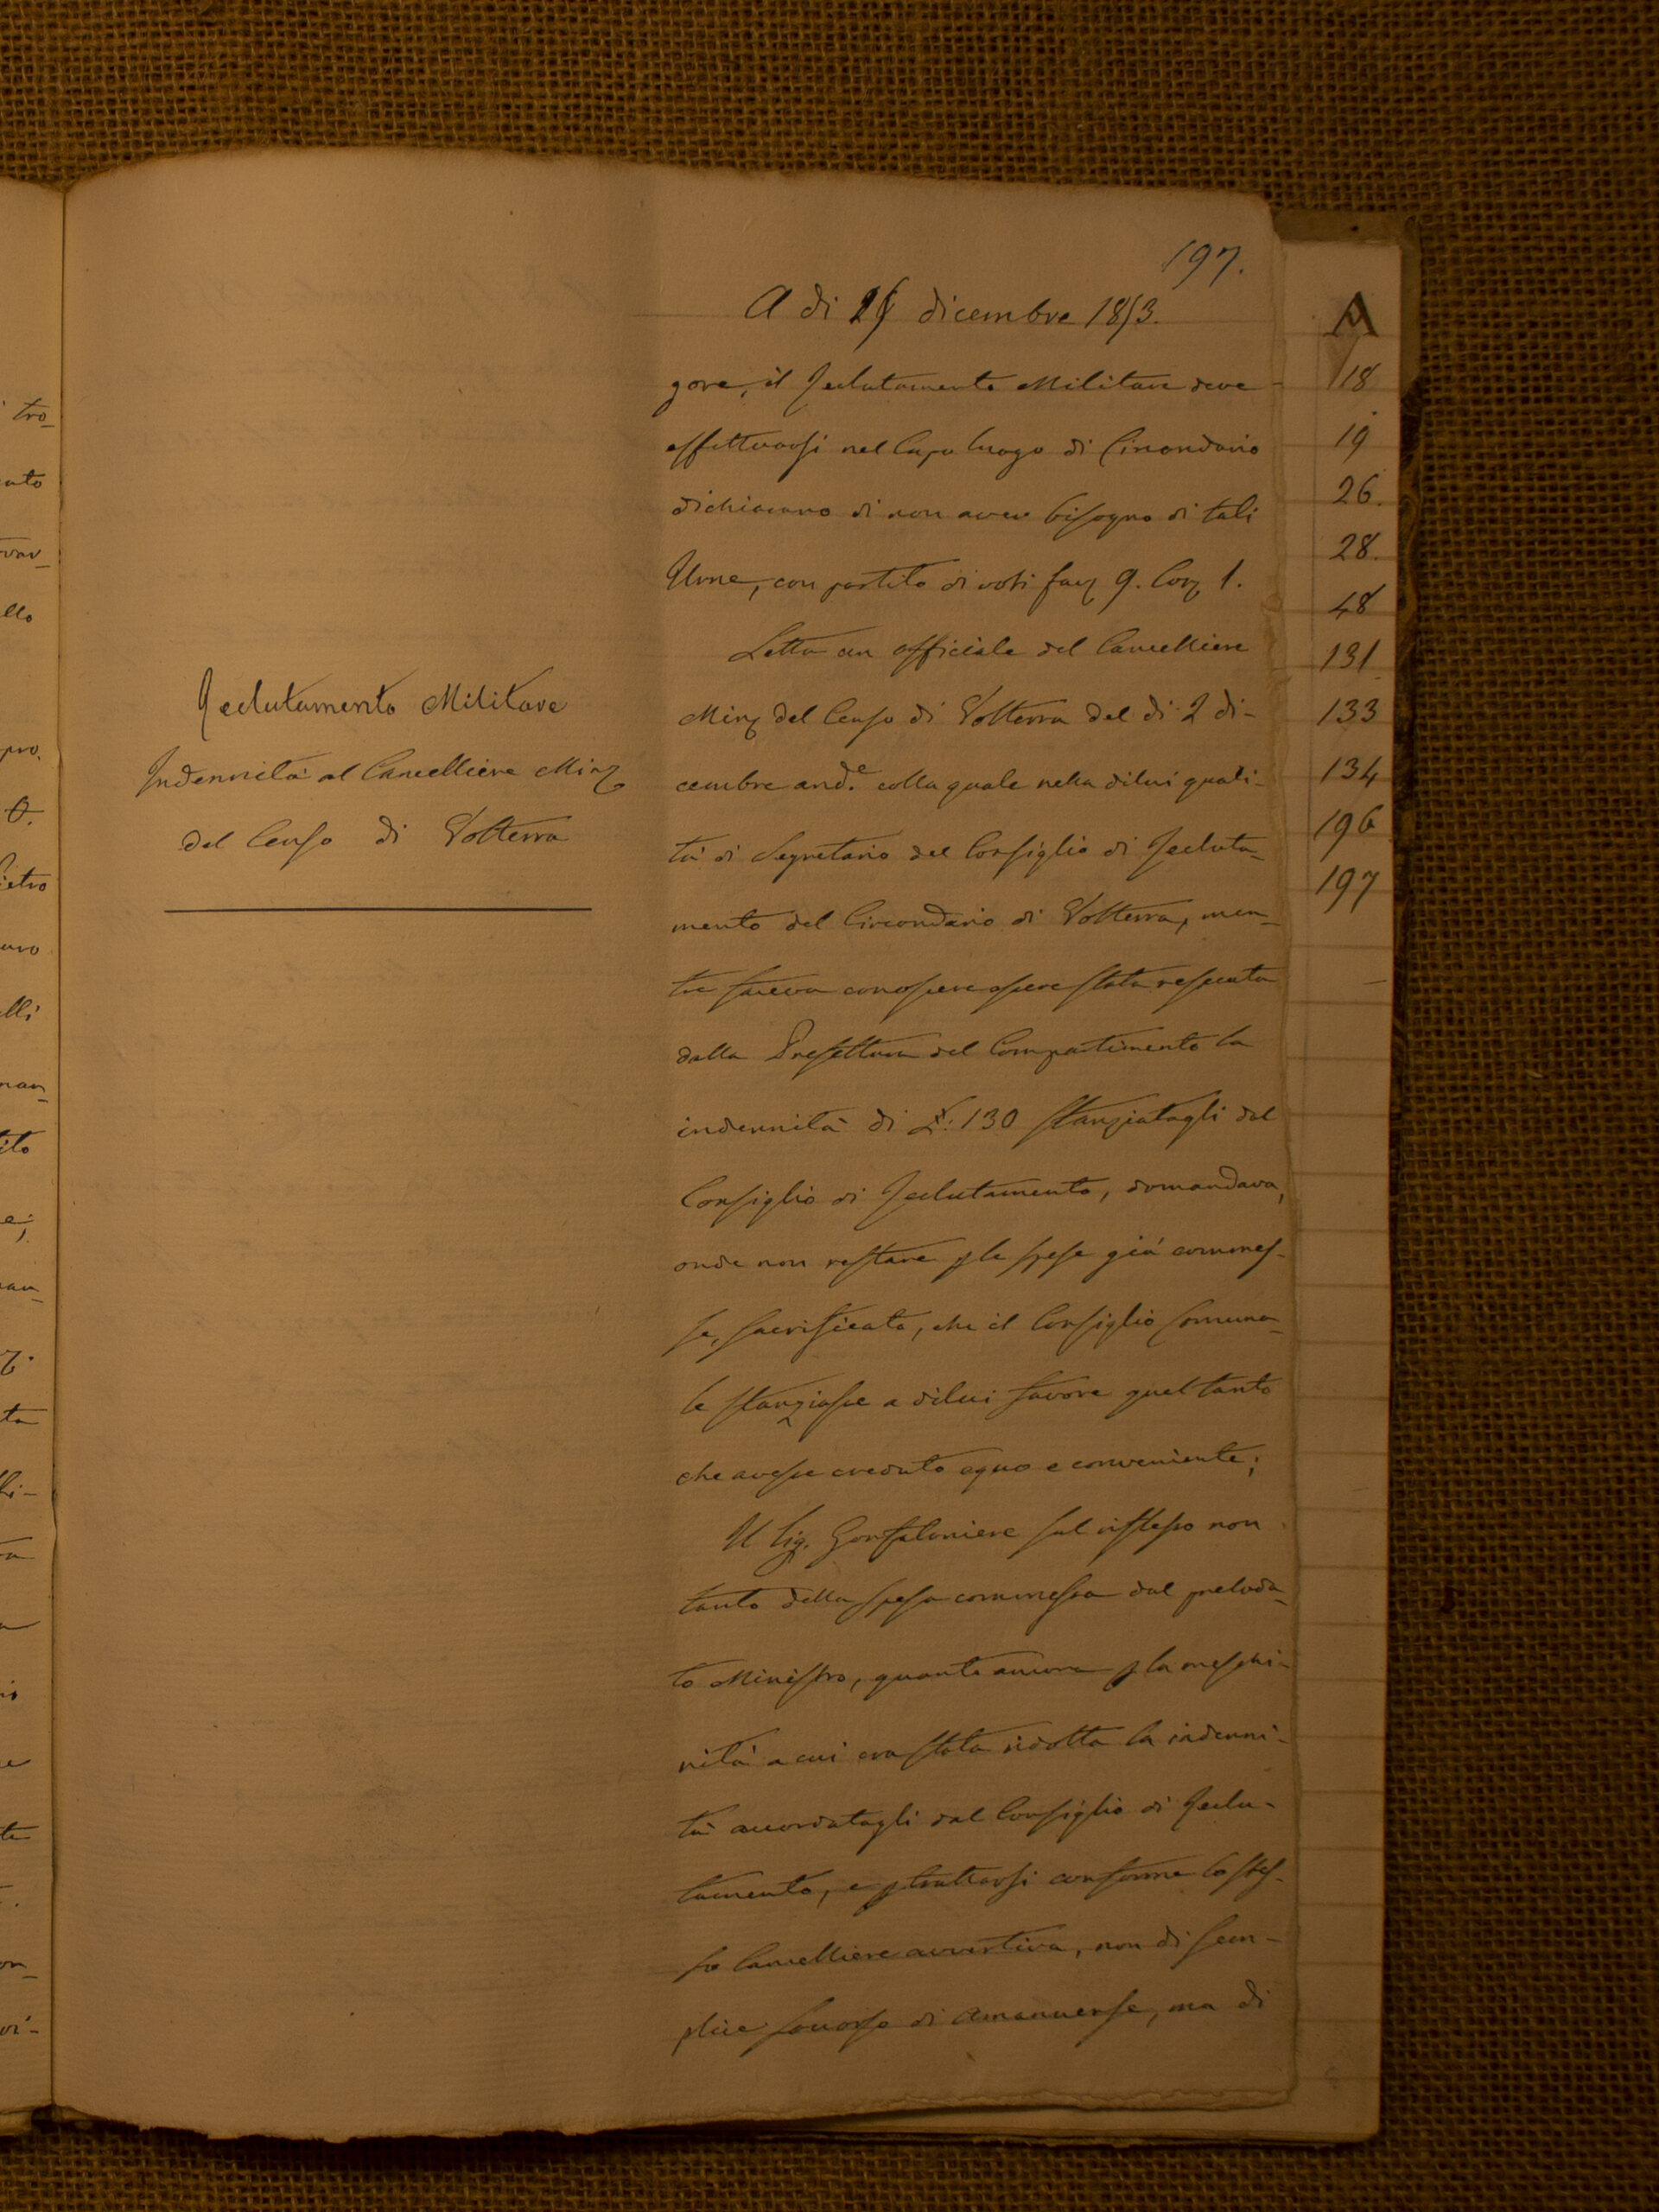 197.
A di dicembre 1853.
gore, il Reclutamento Militare deve
effettuarsi nel Capo luogo di Circondario
dichiarano di non aver bisogno di tali
Urne, con partito di voti fav 9. Con 1.
Letta un officiale del Cancelliere
Min del Censo di Volterra del di 2 di-
cembre and.e colla quale nella dilui quali-
tà di Segretario del Consiglio di Recluta-
mento del Circondario di Volterra, men-
tre faceva conoscere essere stata
dalla Prefettura del Compartimento la
indennità di £: 130 stanziatagli dal
Consiglio di Reclutamento, domandava,
onde non restare p le spese già commes-
se, sacrificato, che il Consiglio Comuna-
le stanziasse a dilui favore quel tanto
che avesse creduto equo e conveniente;
Il Sig. Gonfaloniere sul riflesso non
tanto della spesa commessa dal preloda-
to Ministro, quanto ancora p la meschi-
nità a cui era stata ridotta la indenni-
tà accordatagli dal Consiglio di Reclu-
tamento, e p trattarsi conforme lo stes-
so Cancelliere avvertiva, non di sem-
plice soccorso di Amanuense, ma di
Reclutamento Militare
Indennità al Cancelliere Min
del Censo di Volterra
A
18
19
26.
28.
48
131
133
134
196
197
tro
ello
pro.
ietro
elli
man